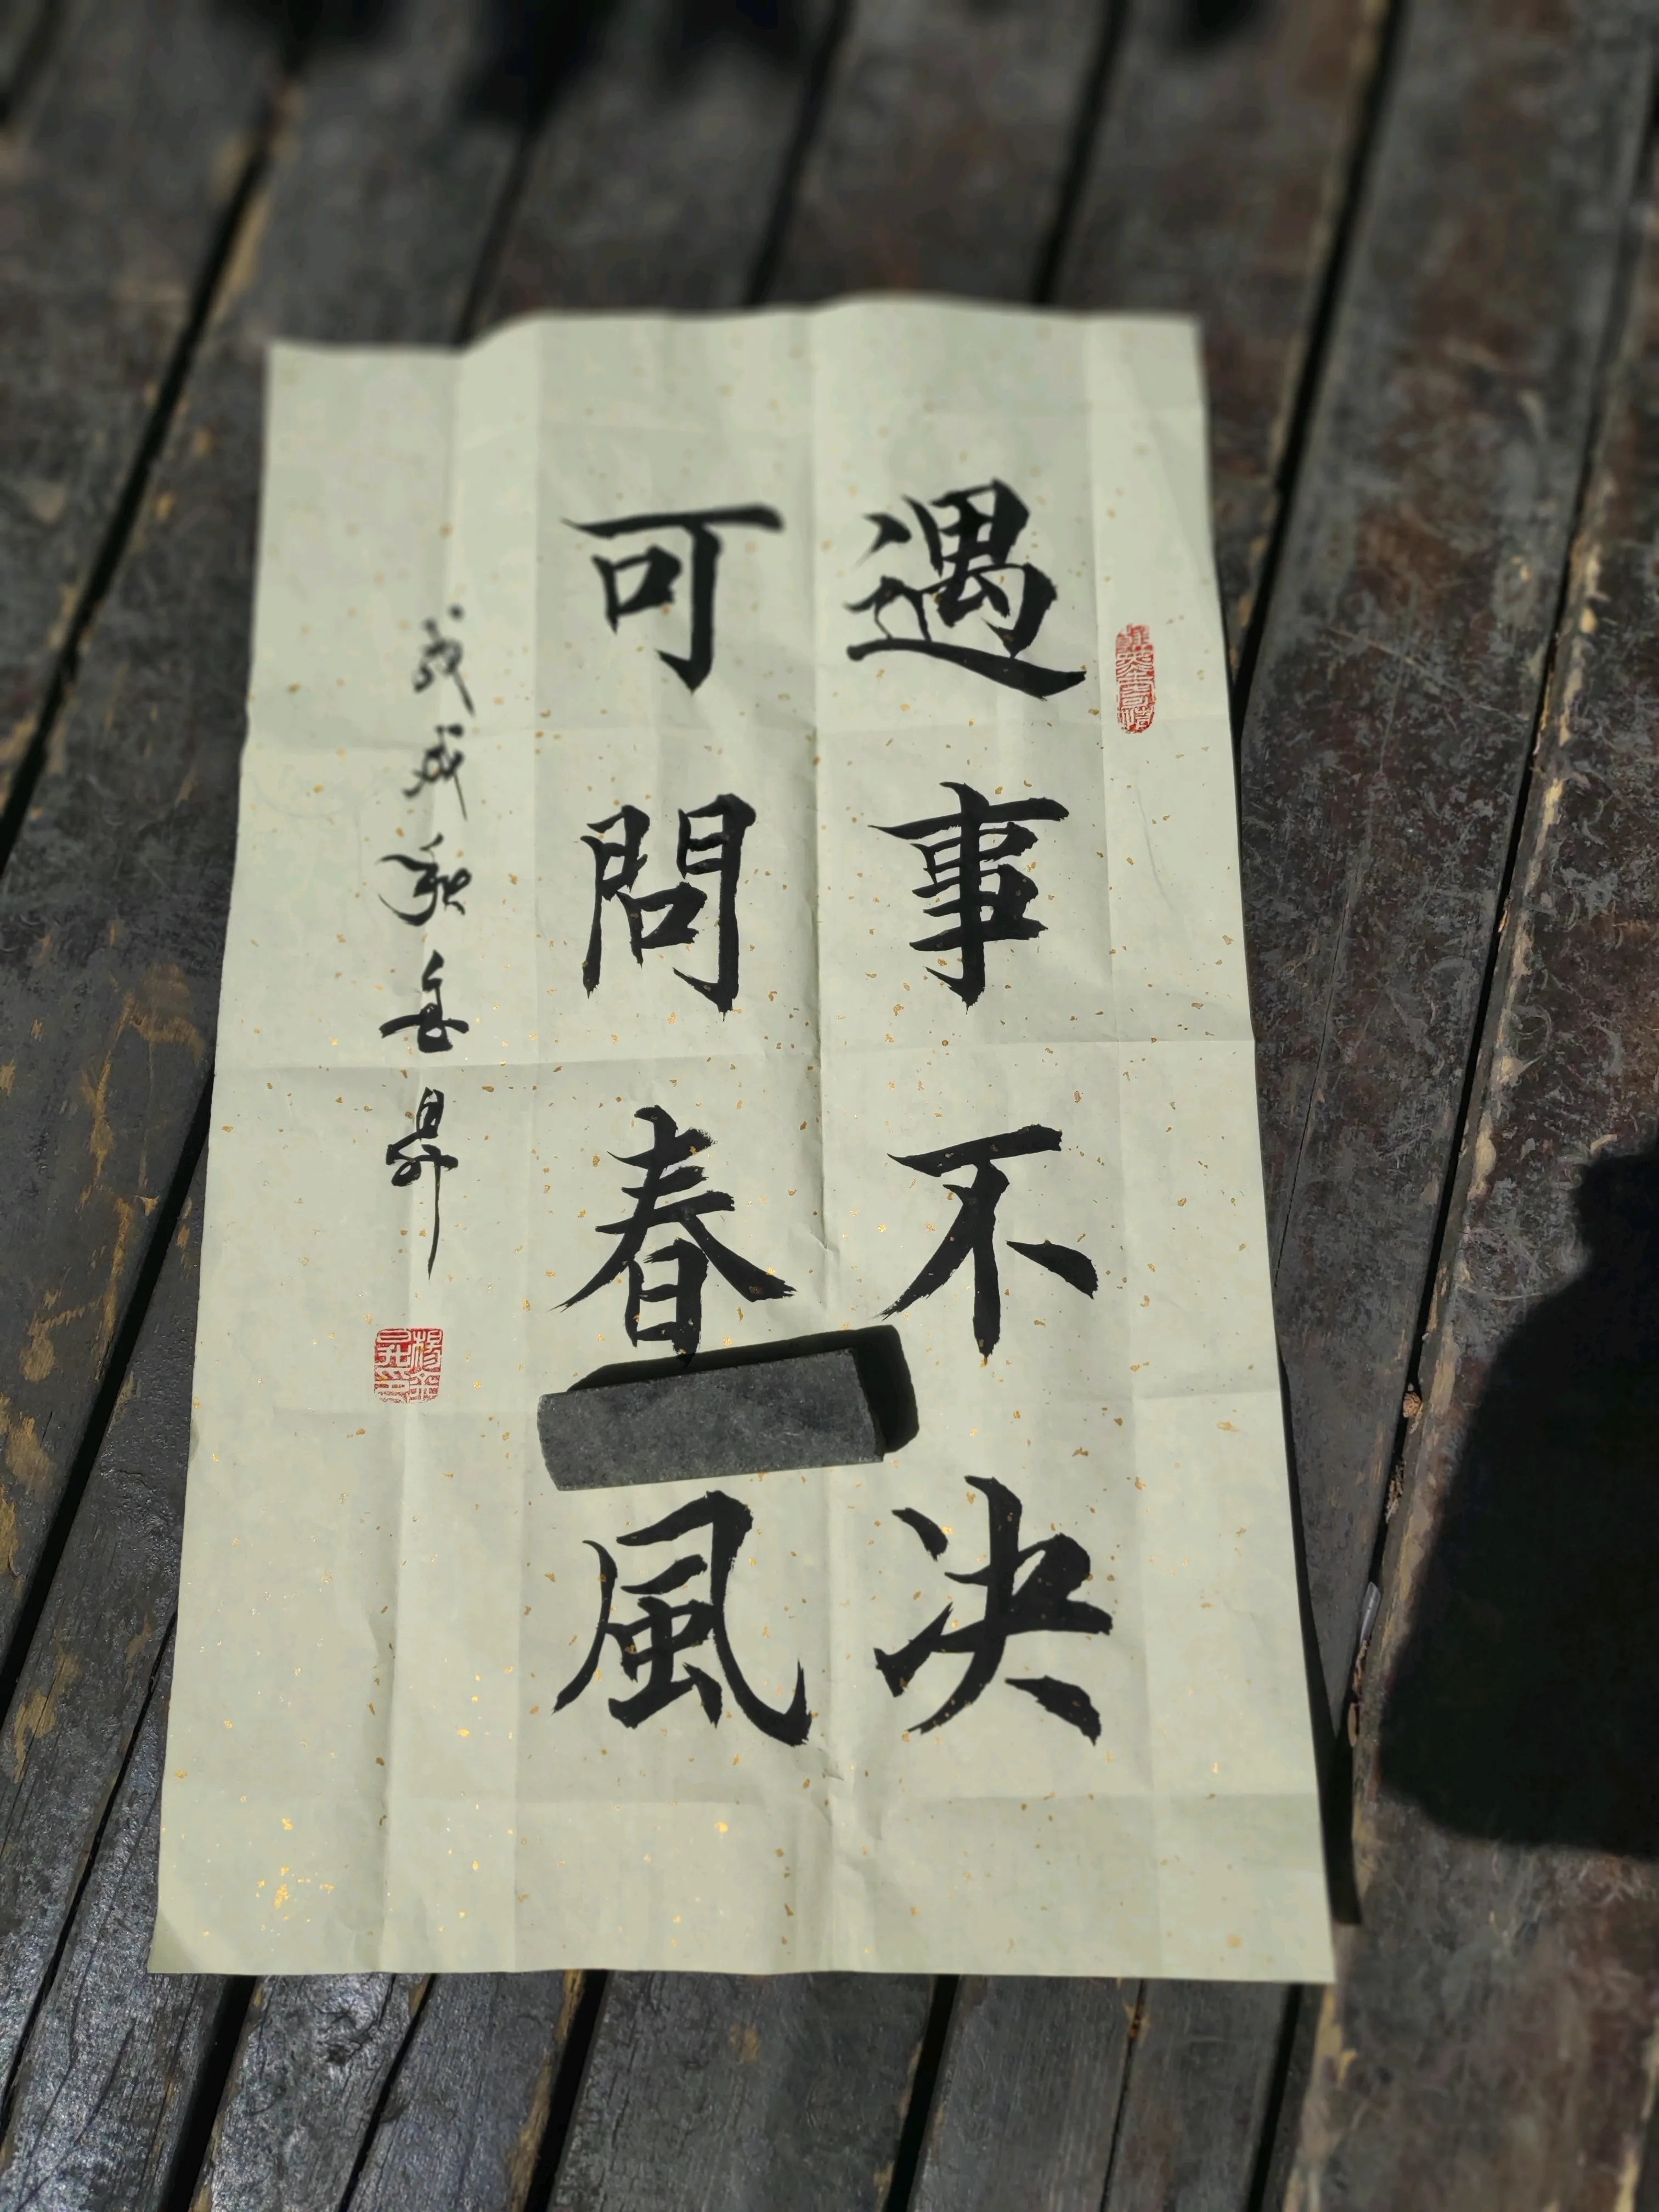 遇事不決
可問春風
戊戌秋岳昇